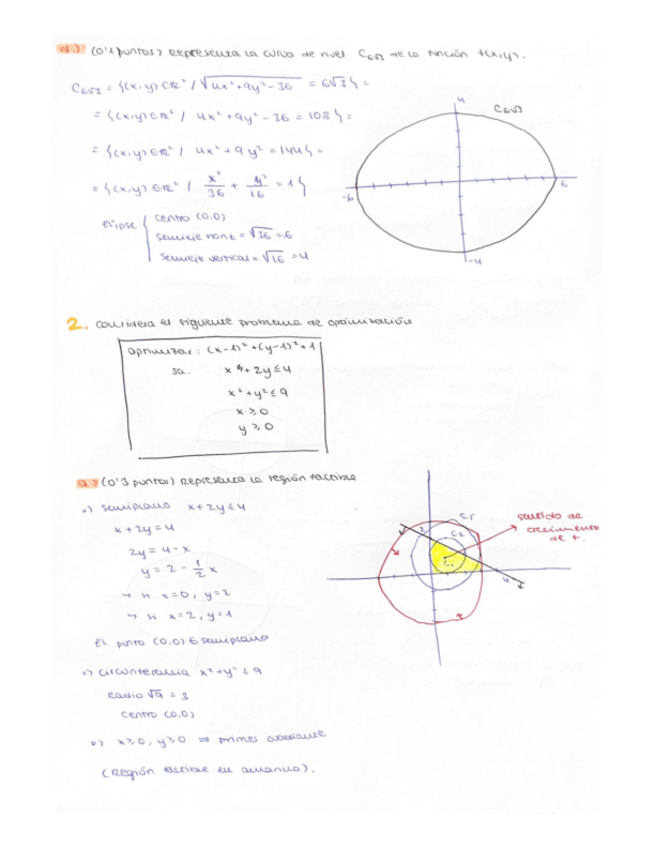 d.) (0'1 puntos) Representa la curva de nivel C6√3 de la función f(x,y).
C6√3 = {(x,y) ∈ ℝ² / √4x²+9y²-36 = 6√3} =
= {(x,y) ∈ ℝ² / 4x²+9y²-36 = 108} =
= {(x,y) ∈ ℝ² / 4x²+9y² = 144} =
= {(x,y) ∈ ℝ² / x²/36 + y²/16 = 1}
elipse { centro (0,0)
semieje horizt = √36 = 6
semieje vertical = √16 = 4
4
C6√3
-6
6
-4
2. Considera el siguiente problema de optimización
Optimizar: (x-1)² + (y-1)² + 1
sa.. x + 2y ≤ 4
x² + y² ≤ 9
x ≥ 0
y ≥ 0
a.) (0'3 puntos) Representa la región factible
·) semiplano x+2y ≤ 4
x + 2y = 4
2y = 4 - x
y = 2 - 1/2 x
→ si x=0, y=2
→ si x=2, y=1
El punto (0,0) ∈ semiplano
·) circunferencia x²+y² ≤ 9
Radio √9 = 3
Centro (0,0)
·) x≥0, y≥0 ⇒ primer cuadrante
(Región factible en amarillo).
C5
2
C2
C1
4
sentido de
crecimiento
de f.